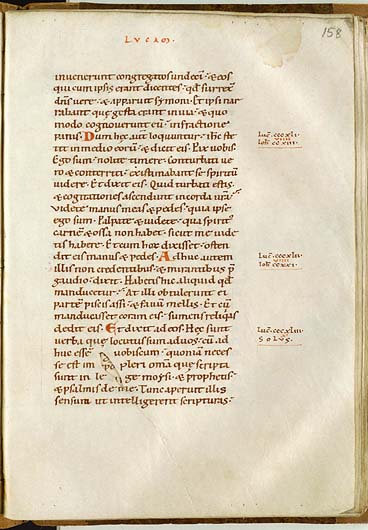 158
LVCAM.
invenerunt congregatos undeci᷒ & eos
qui cum ipsis erant dicentes qđ surrex̄
dn̄s vere & apparuit symoni. Et ipsi nar
rabant que gesta erant in via & quo
modo cognoverunt eū in fractione
panis. Dum hec aut̄ loquuntur ih̄c ste
tit in medio eorū & dicit eis. Pax vobis.
Ego sum nolite timere. Conturbati ve
ro & conterriti existimabant se spiritū
videre. Et dixit eis. Quid turbati estis
& cogitationes ascendunt in corda vr̄a.
Videte manus meas & pedes quia ipse
ego sum. Palpate & videte quia spirit᷒
carnē & ossa non habet sicut me vide
tis habere. Et cum hoc dixisset osten
dit eis manus & pedes. Adhuc autem
illis non credentibus & mirantibus p̄
gaudio dixit. Habetis hic aliquid qđ
manducetur. At illi obtulerunt ei
partē piscis assi & favū mellis. Et cū
manducisset coram eis sumens reliqas
dedit eis. Et dixit ad eos. Hec sunt
verba que locutus sum ad vos cū ad
huc essē vobiscum quoniā neces
se est impleri om̄a que scripta
sunt in lege moysi & prophetis
& psalmis de me. Tunc aperuit illis
sensum ut intelligerent scripturas.
Luc̄. cccxli.
Ioh̄. ccxiii.
Luc̄. cccxlii.
Ioh̄. ccxxi.
Luc̄. cccxliii.
SOLVS.